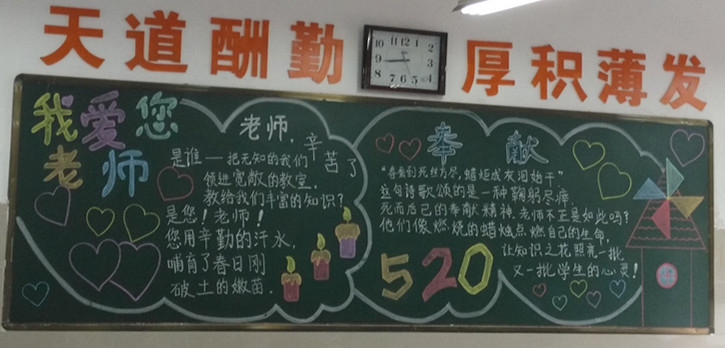 天道酬勤
厚积薄发
我爱您
老师
老师,辛苦了
是谁——把无知的我们
领进宽敞的教室,
教给我们丰富的知识?
是您!老师!
您用辛勤的汗水,
哺育了春日刚
破土的嫩苗.
奉献
“春蚕到死丝方尽,蜡炬成灰泪始干”
这句诗歌颂的是一种鞠躬尽瘁,
死而后已的奉献精神,老师不正是如此吗?
他们像燃烧的蜡烛点燃自己的生命,
让知识之花照亮一批
又一批学生的心灵!
520